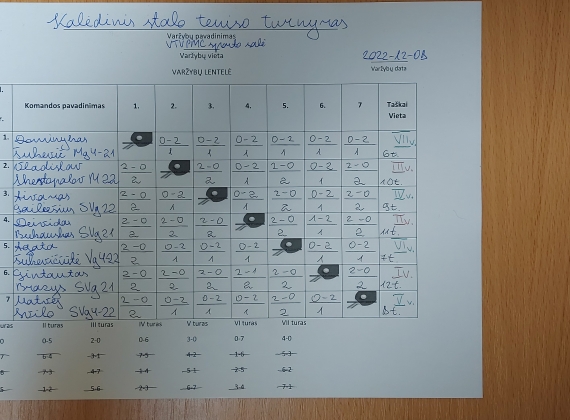 Kalėdinis stalo teniso turnyras
Varžybų pavadinimas
VTVPMC sporto salė
Varžybų vieta
2022-12-08
Varžybų data
VARŽYBŲ LENTELĖ
Komandos pavadinimas 1. 2. 3. 4. 5. 6. 7 Taškai Vieta
1. Dominykas 0-2 0-2 0-2 0-2 0-2 0-2 VII v.
Mg4-21 1 1 1 1 1 1 6t.
2. Vladislav 2-0 2-0 0-2 2-0 0-2 2-0 III v.
Shestopalov M22 2 2 1 2 1 2 10t.
3. 2-0 0-2 0-2 2-0 0-2 2-0 IV v.
SVg22 2 1 1 2 1 2 9t.
4. Deividas 2-0 2-0 2-0 2-0 1-2 2-0 II v.
SVg21 2 2 2 2 1 2 11t.
5. Agata 2-0 0-2 0-2 0-2 0-2 0-2 VI v.
Vg4-22 2 1 1 1 1 1 7t
6. Gintautas 2-0 2-0 2-0 2-1 2-0 2-0 I v.
Brazys SVg21 2 2 2 2 2 2 12t.
7 Matvej 2-0 0-2 0-2 0-2 2-0 0-2 V v.
SVg4-22 2 1 1 1 2 1 8t.
turas II turas III turas IV turas V turas VI turas VII turas
0 0-5 2-0 0-6 3-0 0-7 4-0
7 6-4 3-1 7-5 4-2 1-6 5-3
6 7-3 4-7 1-4 5-1 2-5 6-2
5 1-2 5-6 2-3 6-7 3-4 7-1